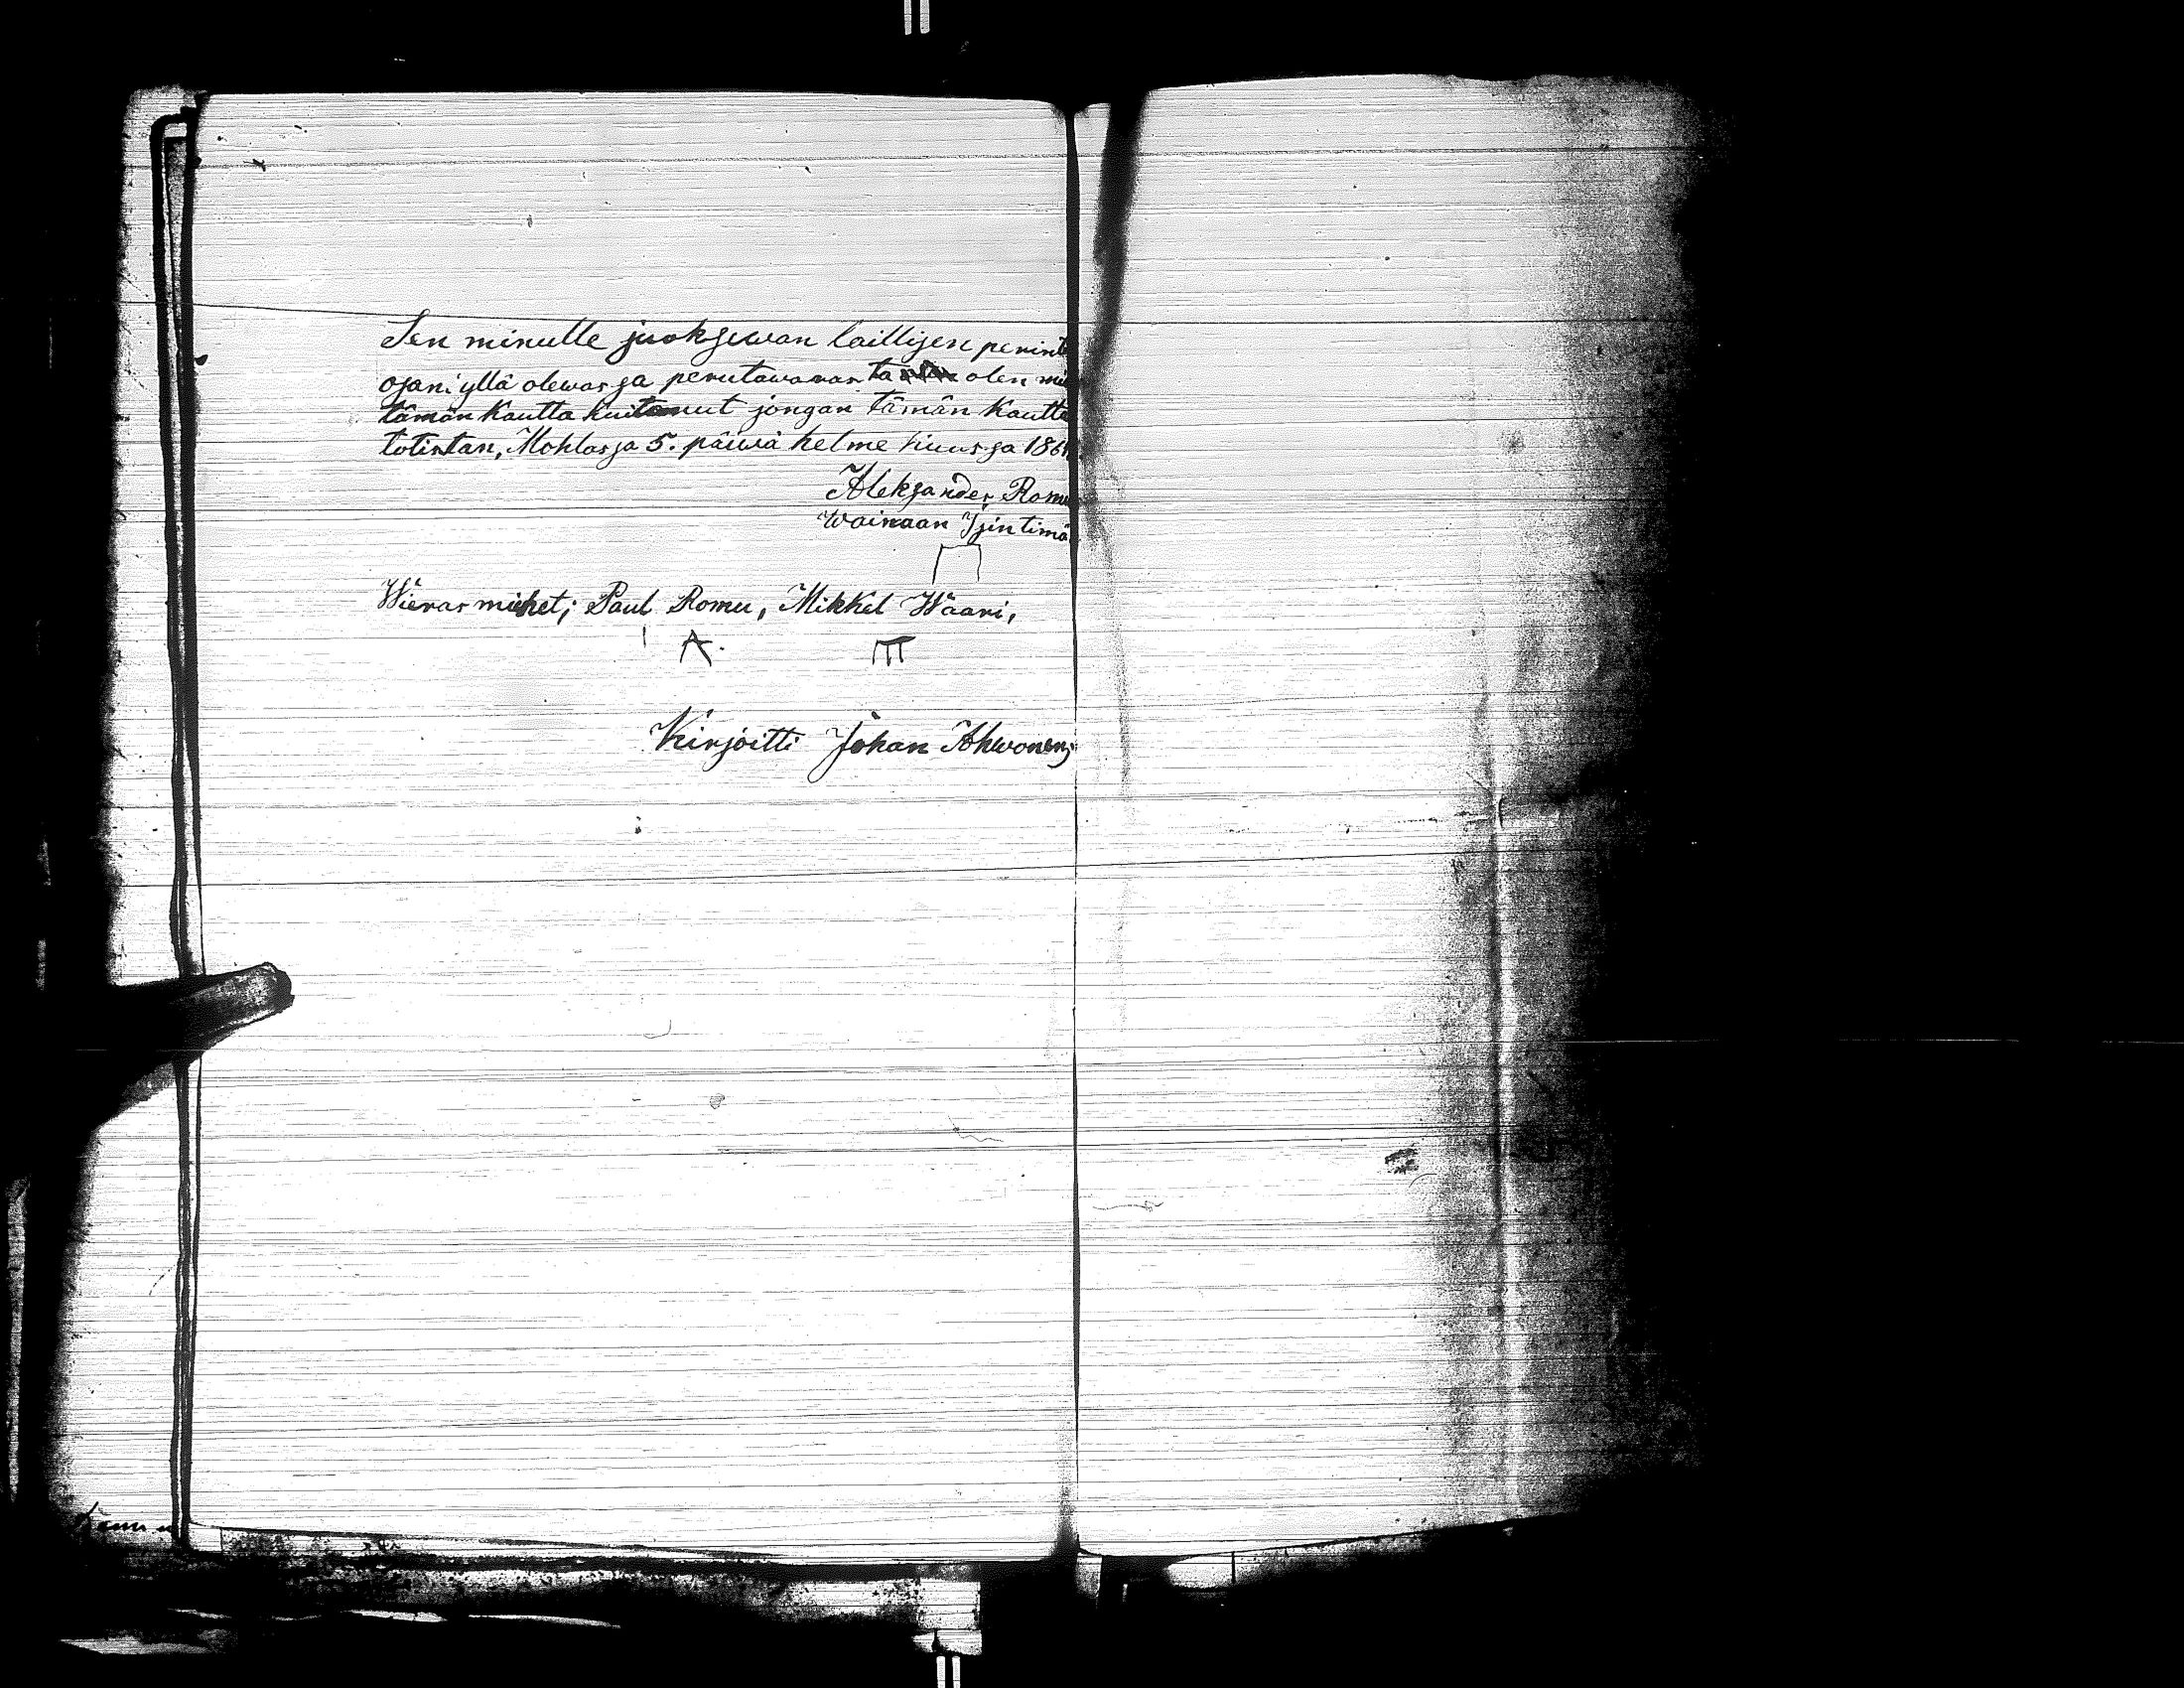 Sen minulle juoksewan laillisen perint
osani yllä olewassa perutawarasta olen
tämän kautta kuitanut jongan tämän kautta
totistan, Mohlassa 5. päiwä helme kuussa 186
Aleksander Romu
Wainaan Isintimä
Wieras miehet; Paul Romu, Mikkel Wäari,
Kirjoitti Johan Ahwonen;